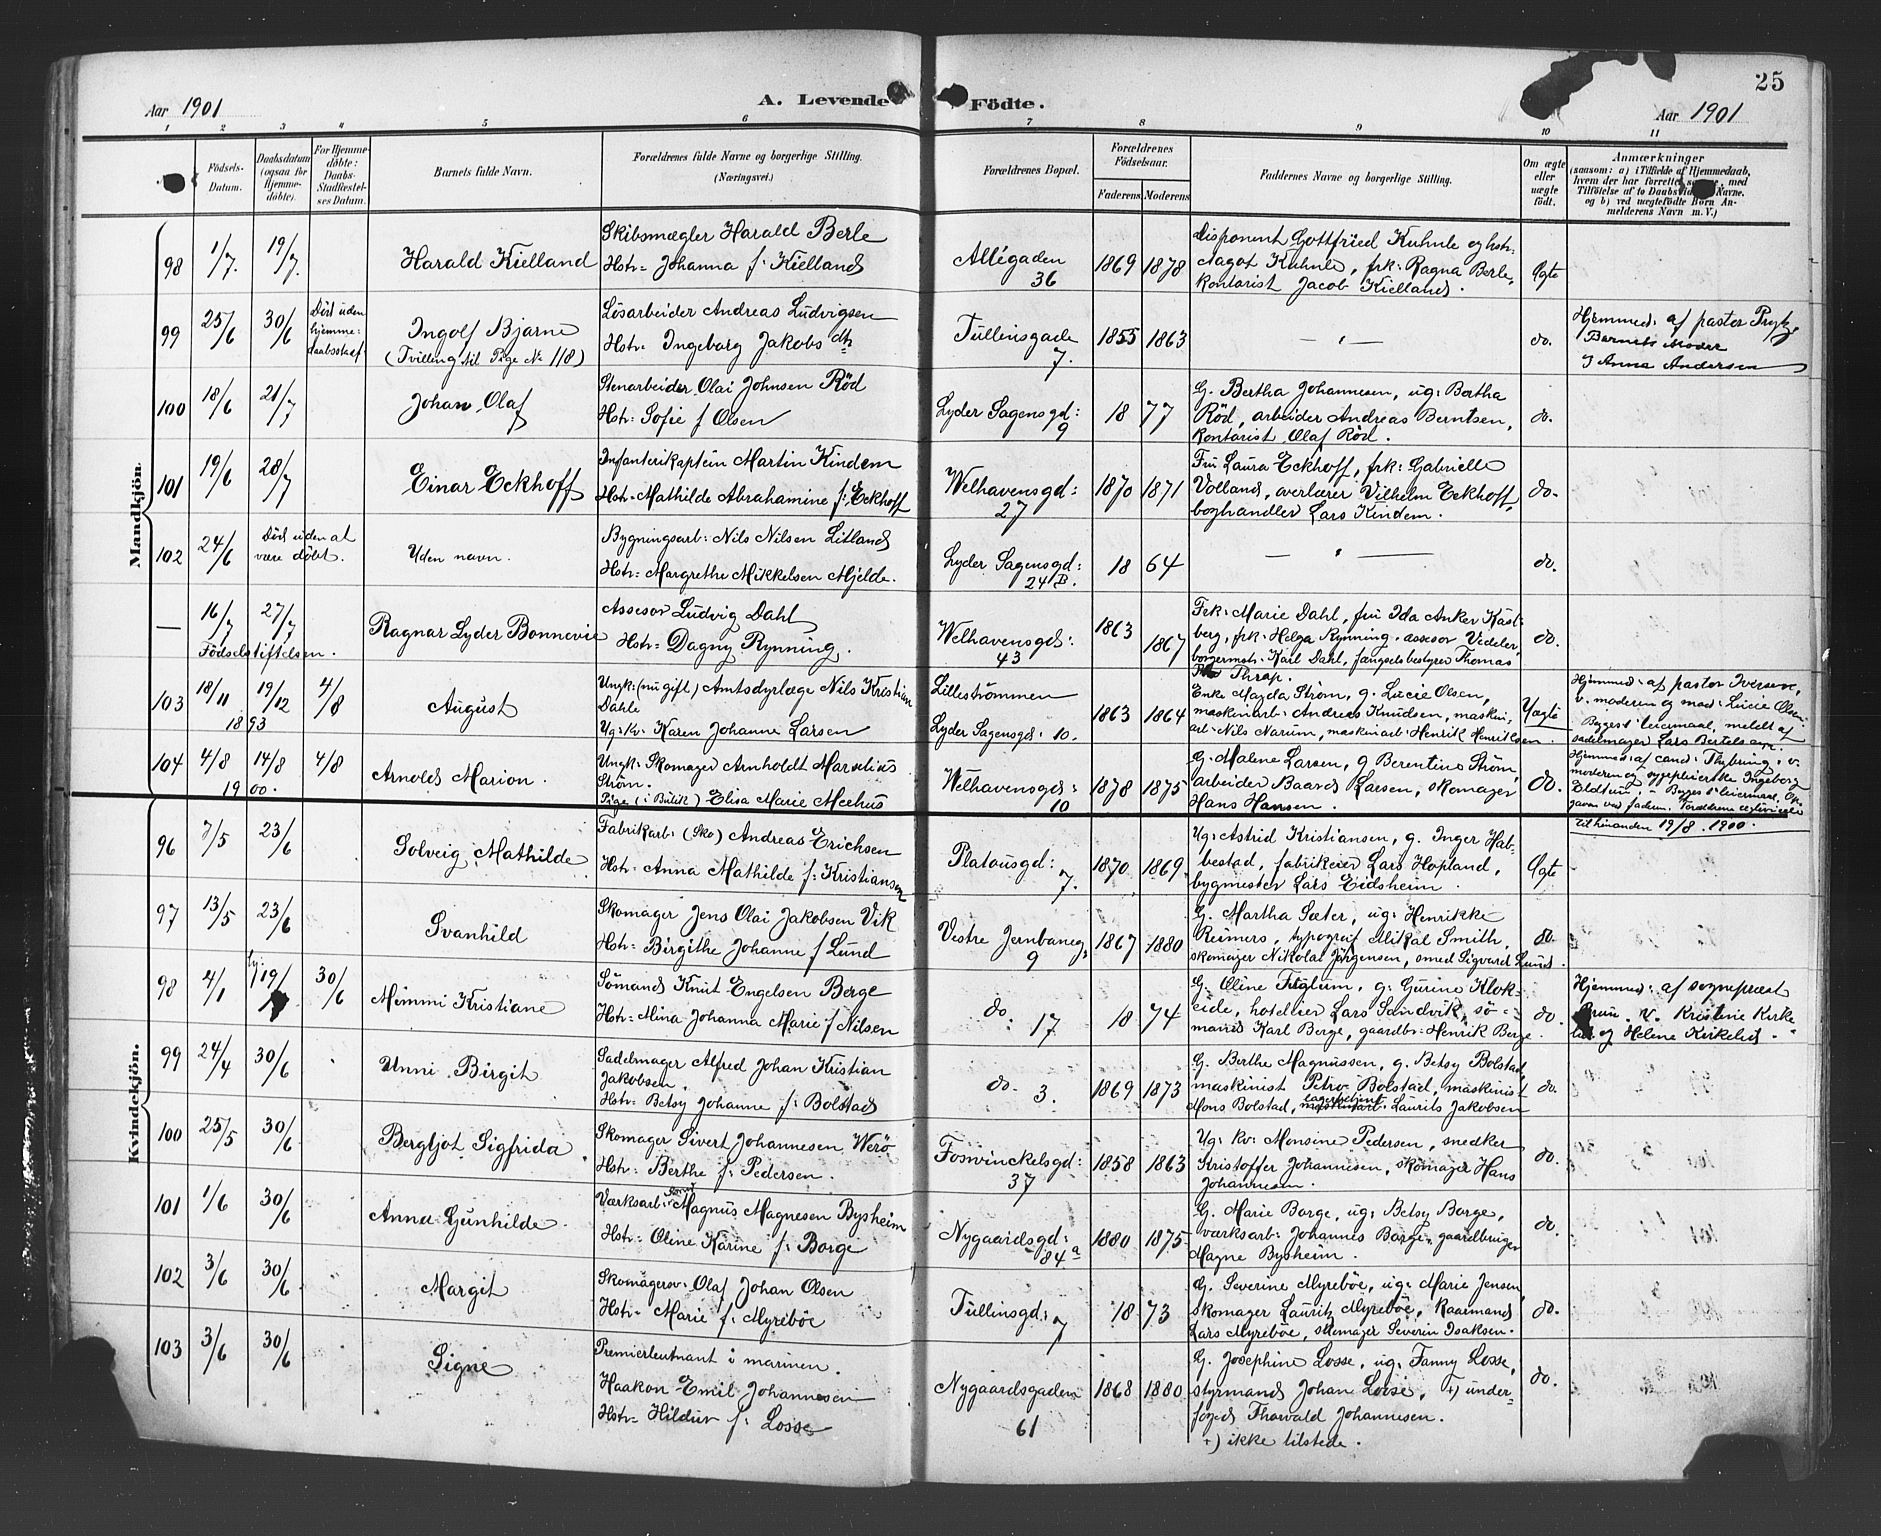 25
Aar 1901
A. Levende Födte.
Aar 1901
1 2 3 4 5 6 7 8 9 10 11
Födsels-Datum.
Daabsdatum (ogsaa for Hjemme-döbte).
For Hjemme-döbte: Daabs-Stadfæstel-ses Datum.
Barnets fulde Navn.
Forældrenes fulde Navne og borgerlige Stilling.
(Næringsvei.)
Forældrenes Bopæl.
Forældrenes Födselsaar.
Faderens Moderens
Faddernes Navne og borgerlige Stilling.
Om ægte eller uægte födt.
Anmærkninger
(saasom: a) i Tilfælde af Hjemmedaab,
hvem der har forrettet samme, med
Tilföielse af to Daabsvidners Navne,
og b) ved uægtefödte Börn An-
melderens Navn m. V.)
Mandkjön.
98 1/7. 19/7. Harald Kielland
Skibsmægler Harald Berle
Hstr= Johanna f: Kielland
Allégaden 36 1869 1878
Disponent Gottfried Kuhnle og hstr=
Dagot Kuhnle, frk: Ragna Berle,
kontorist Jacob Kielland.
Ægte
99 25/6 30/6 Död uden hjemme=daabsstadf.
Ingolf Bjarne
(Tvilling til Pige No 118)
Lösarbeider Andreas Ludvigsen
Hstr= Ingeborg Jakobsdtr
Tullinsgade 7. 1855 1863
— " —
do.
Hjemmed: af pastor Prytz
Barnets Moder
J Anna Andersen
100 18/6 21/7 Johan Olaf
Stenarbeider Olai Johnsen Röd
Hst: Sofie f Olsen
Lyder Sagensgd: 9 18 77
G. Bertha Johannesen, ug: Bertha
Röd, arbeider Andreas Berntsen,
kontorist Olaf Röd.
do.
101 19/6 28/7 Einar Eckhoff
Infanterikaptein Martin Kindem
Hst= Mathilde Abrahamine f: Eckhoff
Welhavensgd: 27 1870 1871
Fru Laura Eckhoff, frk: Gabrielle
Volland, overlærer Vilhelm Eckhoff,
boghandler Lars Kindem.
do.
102 24/6 Död uden at være döbt. Uden navn.
Bygningsarb: Nils Nilsen Litland
Hstr= Margrethe Mikkelsen Mjelde.
Lyder Sagensgd: 24 B. 18 64
— " —
do.
— 16/7 27/7 Födselstiftelsen.
Ragnar Lyder Bonnevie
Assesor Ludvig Dahl
Hstr= Dagny Rynning.
Welhavensgd: 43 1863 1867
Frk: Marie Dahl, fru Ida Anker Kast-
berg, frk: Helga Rynning, assesor Vedeler,
borgermstr: Karl Dahl, fængselsbestyrer Thomas
Thrap.
do.
103 18/11 19/12 4/8
1893 August
Ungk: (nu gift) Amtsdyrlæge Nils Kristian
Dahle
Ug: kv: Karen Johanne Larsen
Lillestrømmen
Lyder Sagensgd: 10. 1863 1864
Enke Magda Ström, g. Lucie Olsen,
maskinarb: Andreas Knudsen, maskin,
arb: Nils Narum, maskinarb: Henrik Henriksen.
Uægte
Hjemmed: af pastor Iversen,
v. moderen og mad: Lucie Olsen
Byges 1ste leiermaal, meldt af
sadelmager Lars Bertelsen.
104 4/8 14/8 4/8
1900. Arnold Marion.
Ungk: Skomager Arnholdt Marselius
Ström.
Pige (i Butik) Elisa Marie Meehus
Welhavensgd: 10 1878 1875
G. Malene Larsen, g Berentine Ström,
arbeider Baard Larsen, skomager
Hans Hansen.
do.
Hjemmed: af cand: Thybring, v.
moderen og sygepleierske Ingeborg
til hinanden 19/8. 1900.
Kvindekjön.
96 7/5 23/6 Solveig Mathilde
Fabrikarb: (Sko) Andreas Erichsen
Hst: Anna Mathilde f: Kristiansen
Platousgd: 7. 1870 1869
Ug: Astrid Kristiansen, g. Inger Hab-
bestad, fabrikeier Lars Hopland,
bygmester Lars Eidsheim.
Ægte
97 13/5 23/6 Svanhild
Skomager Jens Olai Jakobsen Vik
Hst= Birgithe Johanne f Lund
Vestre Jernbaneg: 9 1867 1880
G. Martha Sæter, ug: Henrikke
Reimers, typograf Mikal Smith,
skomager Nikolai Jörgensen, smed Sigvard Lund.
do.
98 4/1 19/ 30/6 Mimmi Kristiane
Sömand Knut Engelsen Berge
Hst= Mina Johanna Marie f Nilsen
do: 17 18 74
G. Oline Fuglum, g: Gurine Klok-
eide, hotellier Lars Sandvik, sö=
mand Karl Berge, gaardbr: Henrik Berge.
do.
Hjemmed: af sogneprest
Bruun. v. Kristine Kirke-
lid og Helene Kirkelid.
99 24/4 30/6 Unni Birgit
Sadelmager Alfred Johan Kristian
Jakobsen.
Hst= Betsy Johanne f: Bolstad
do. 3. 1869 1873
G. Berthe Magnussen, g. Betsy Bolstad,
maskinist Petro Bolstad, maskinist
Mons Bolstad, Laurits Jakobsen
do.
100 25/5 30/6 Bergljot Sigfrida
Skomager Sivert Johannesen Werö
Hst: Berthe f: Pedersen.
Foswinckelsgd: 37 1858 1863
Ug: kv: Monsine Pedersen, snedker
Kristoffer Johannesen, skomager Hans
Johannesen.
do.
101 1/6 30/6 Anna Gunhilde
Værksarb: Magnus Magnesen Bysheim
Hst: Oline Karine f: Borge
Nygaardsgd: 84 a 1880 1875
G. Marie Borge, ug: Betsy Borge,
værksarb: Johannes Borge, gaardbruger
Magne Bysheim.
do.
102 3/6 30/6 Margit
Skomagersv: Olaf Johan Olsen
Hst= Marie f: Myreböe
Tullinsgd: 7 18 73
G. Severine Myreböe, ug: Marie Jensen,
skomager Lauritz Myreböe, kaarmand
Lars Myreböe, skomager Severin Isaksen.
do.
103 3/6 30/6 Signe
Premierleutnant i marinen
Haakon Emil Johannesen
Hst= Hildur f: Losse
Nygaardsgaden 61 1868 1880
G. Josephine Losse, ug: Fanny Losse,
styrmand Johan Losse, +) under-
foged Thorvald Johannesen.
+) ikke tilstede.
do.